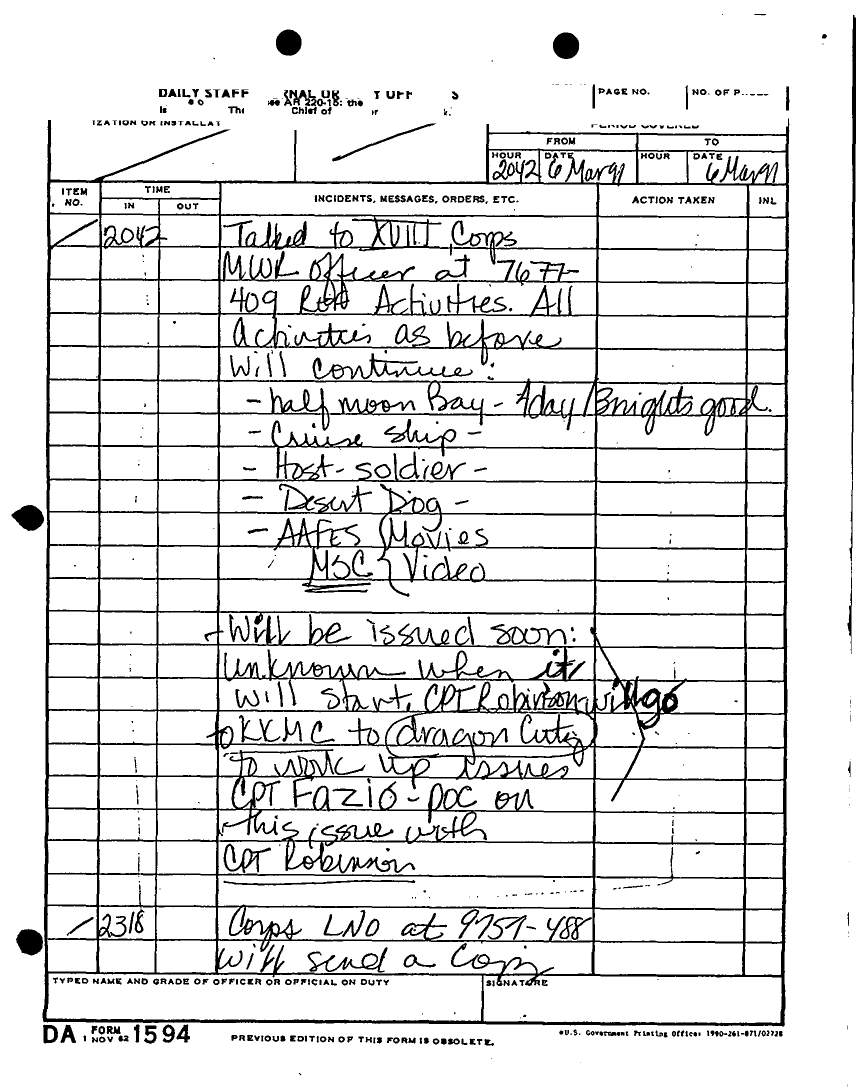 DAILY STAFF
PAGE NO.
NO. OF P
see AR 220-15; the
Chief of
IZATION OR INSTALLAT
PERIOD COVERED
FROM
TO
HOUR
DATE
HOUR
DATE
2042
6 Mar 91
6 Mar 91
ITEM NO.
TIME
IN
OUT
INCIDENTS, MESSAGES, ORDERS, ETC.
ACTION TAKEN
INL
2042
Talked to XVIII Corps
MWR officer at 7677-
409 Activities. All
Activities as before
Will continue:
- half moon Bay - 4day/3nights good.
- Cruise ship -
- Host-soldier -
- Desert Dog -
- AAFES { Movies
MSC { Video
- Will be issued soon:
unknown when it
will start. CPT Robinson will go
to KKMC to dragon City
to work up issues
CPT Fazio - POC on
this issue with
CPT Robinson
2318
Corps LNO at 9757-488
will send a Copy
TYPED NAME AND GRADE OF OFFICER OR OFFICIAL ON DUTY
SIGNATURE
DA FORM 1 NOV 62 1594
PREVIOUS EDITION OF THIS FORM IS OBSOLETE.
U.S. Government Printing Office: 1990-261-871/02728